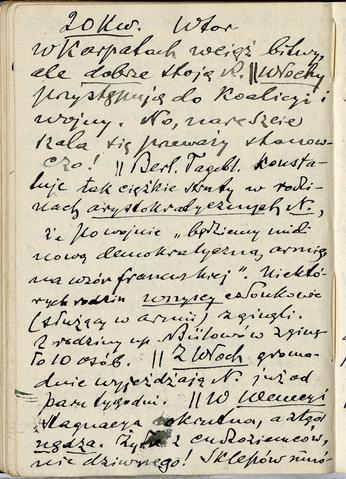 20 Kw. Wtor
w Karpatach wciąż bitwy,
ale dobrze stoją R. || Włochy
przystępują do Koalicyi i
wojny. No, nareszcie
szala się przeważy stanow-
czo! || Berl. Tagebl. konsta-
tuje tak ciężkie straty w rodzi-
nach arystokratycznych N.,
że po wojnie "będziemy mieli
nową demokratyczną armię
na wzór francuskiej". Niektó-
rych rodzin wszyscy członkowie
(służący w armii) zginęli.
Z rodziny np. Bülowów zginę-
ło 10 osób. || Z Włoch groma-
dnie wyjeżdżają N. już od
paru tygodni. || W Wenecyi
stagnacya okrutna, a stąd
nędza. Żyła z cudzoziemców,
nic dziwnego! Sklepów mnó-